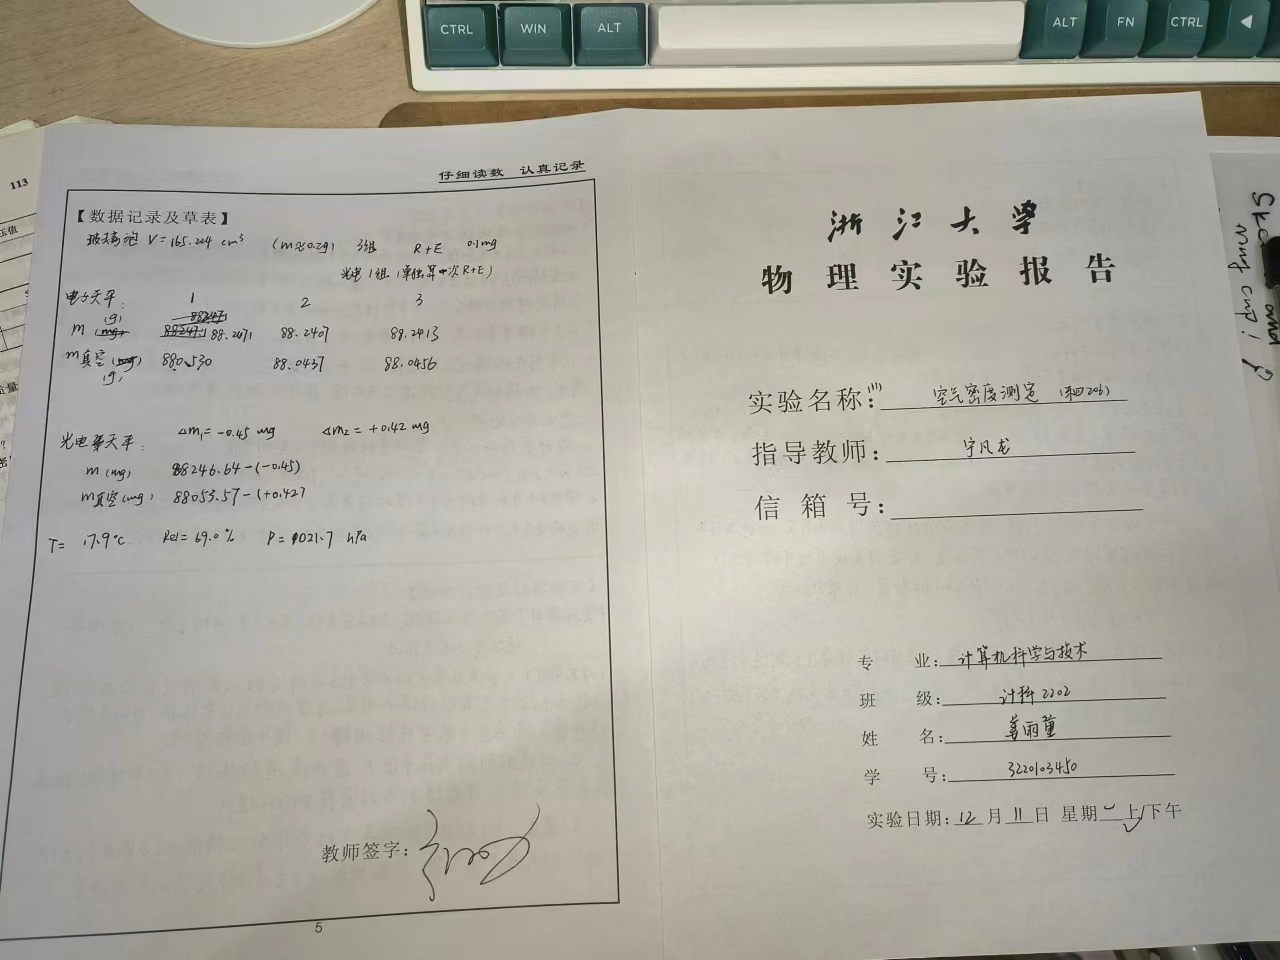 CTRL
WIN
ALT
ALT
FN
CTRL
113
仔细读数 认真记录
【数据记录及草表】
玻璃泡 V=165.204 cm³ (m≈0.2g) 3组 R+E 0.1mg
光电1组(单独算一次R+E)
电子天平: 1 2 3
m (g) 88.2471 88.2407 88.2413
m真空 (g) 88.0530 88.0437 88.0456
光电天平: Δm₁=-0.45 mg Δm₂=+0.42 mg
m(mg) 88246.64-(-0.45)
m真空(mg) 88053.57-(+0.42)
T= 17.9℃ Rel=69.0% P=1021.7 hPa
教师签字:
5
浙江大学
物理实验报告
实验名称: 空气密度测定
指导教师: 宁凡龙
信箱号:
专 业: 计算机科学与技术
班 级: 计科2202
姓 名: 姜雨童
学 号: 3220103450
实验日期: 12月11日 星期一上/下午